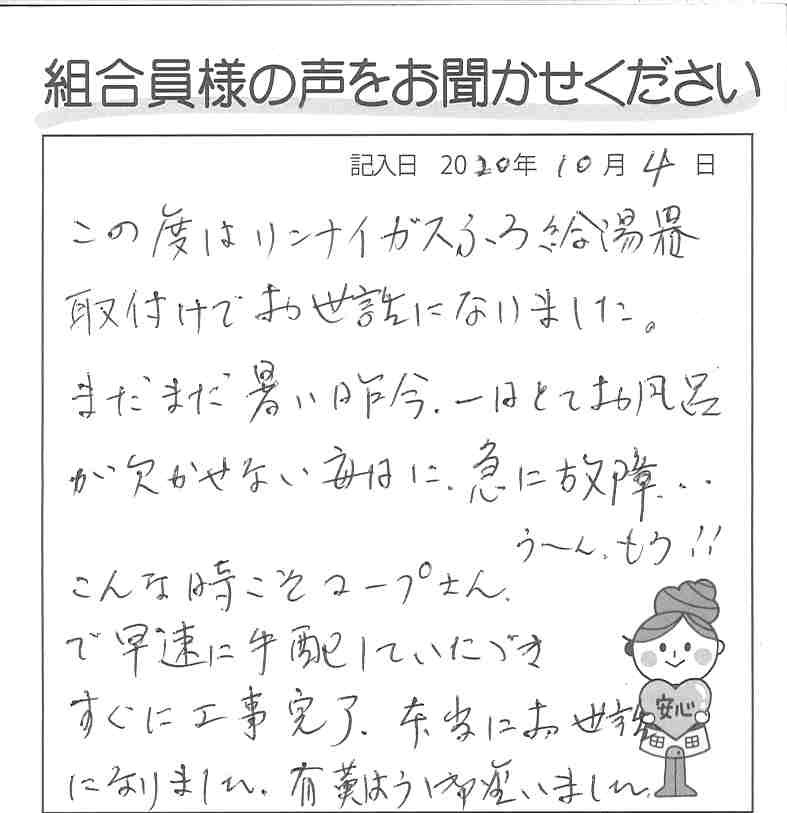 組合員様の声をお聞かせください
記入日 2020年 10月 4日
この度はリンナイガスふろ給湯器
取付けでお世話になりました。
まだまだ暑い昨今、一日とてお風呂
が欠かせない毎日に、急に故障...
う〜ん、もう!!
こんな時こそコープさん、
で早速に手配していただき
すぐに工事完了、本当にお世話
安心
になりました、有難う御座いました